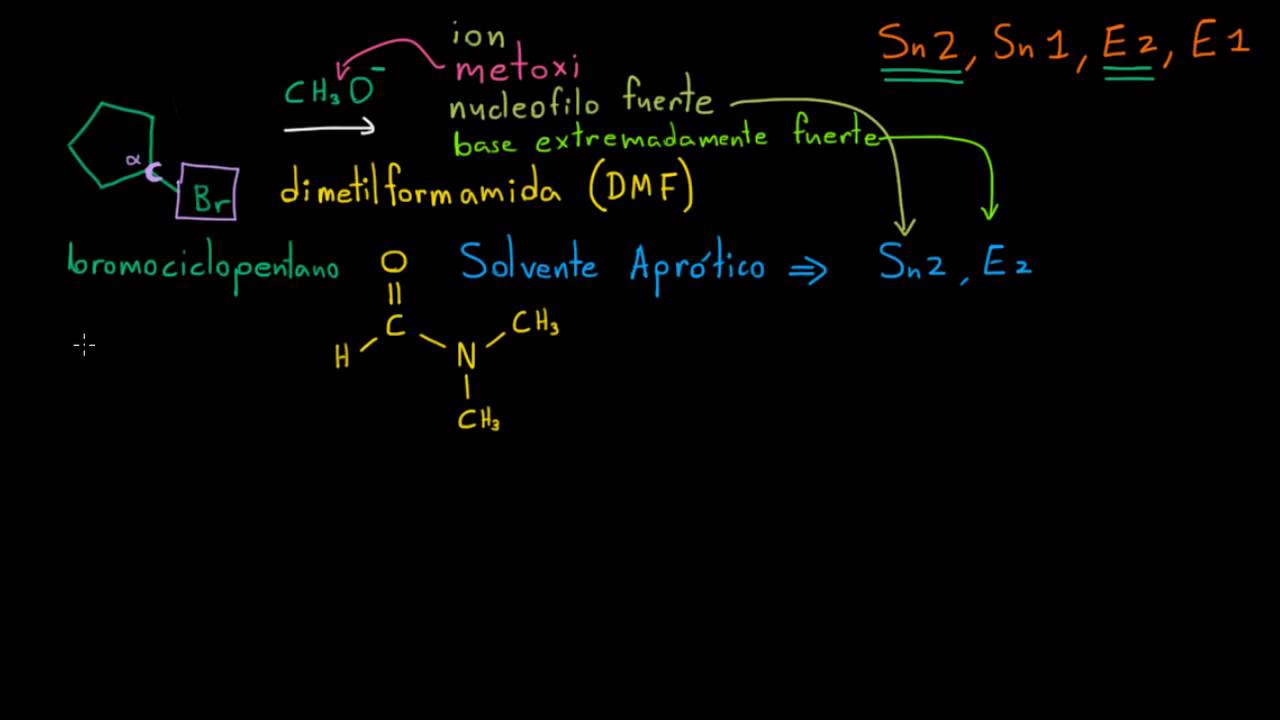 ion
Sn2, Sn1, E2, E1
metoxi
CH₃O⁻
nucleofilo fuerte
base extremadamente fuerte
α
C
Br
dimetilformamida (DMF)
bromociclopentano
Solvente Aprótico ⇒ Sn2, E2
O
C
H
N
CH₃
CH₃